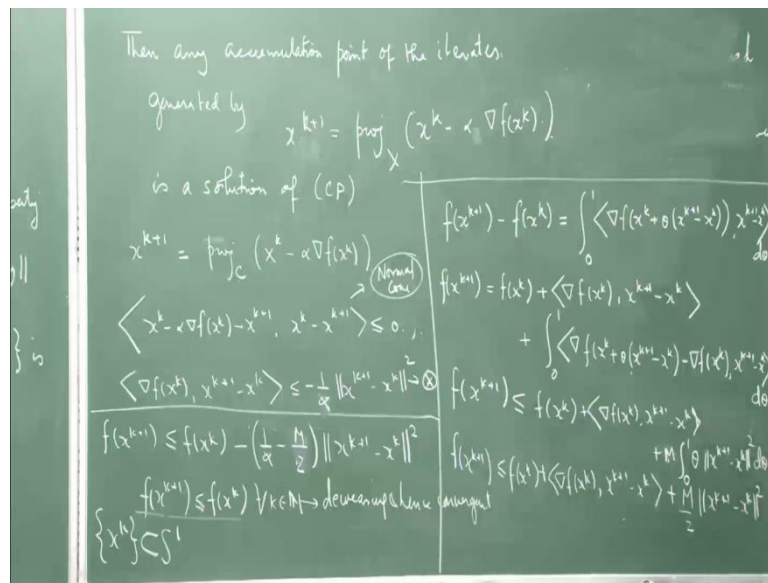 Then any accumulation point of the iterates
generated by
x^{k+1} = proj_X (x^k - α ∇f(x^k))
is a solution of (CP)
x^{k+1} = proj_C (x^k - α∇f(x^k))
Normal Cone
⟨x^k - α∇f(x^k) - x^{k+1}, x^k - x^{k+1}⟩ ≤ 0
⟨∇f(x^k), x^{k+1} - x^k⟩ ≤ -1/α ||x^{k+1} - x^k||^2 → ⊗
f(x^{k+1}) ≤ f(x^k) - (1/α - M/2) ||x^{k+1} - x^k||^2
f(x^{k+1}) ≤ f(x^k) ∀k∈ℕ → decreasing hence convergent
{x^k} ⊂ S'
f(x^{k+1}) - f(x^k) = ∫_0^1 ⟨∇f(x^k + θ(x^{k+1} - x^k)), x^{k+1} - x^k⟩ dθ
f(x^{k+1}) = f(x^k) + ⟨∇f(x^k), x^{k+1} - x^k⟩
+ ∫_0^1 ⟨∇f(x^k + θ(x^{k+1} - x^k) - ∇f(x^k), x^{k+1} - x^k⟩ dθ
f(x^{k+1}) ≤ f(x^k) + ⟨∇f(x^k), x^{k+1} - x^k⟩
+ M ∫_0^1 θ ||x^{k+1} - x^k||^2 dθ
f(x^{k+1}) ≤ f(x^k) + ⟨∇f(x^k), x^{k+1} - x^k⟩ + M/2 ||x^{k+1} - x^k||^2
} is